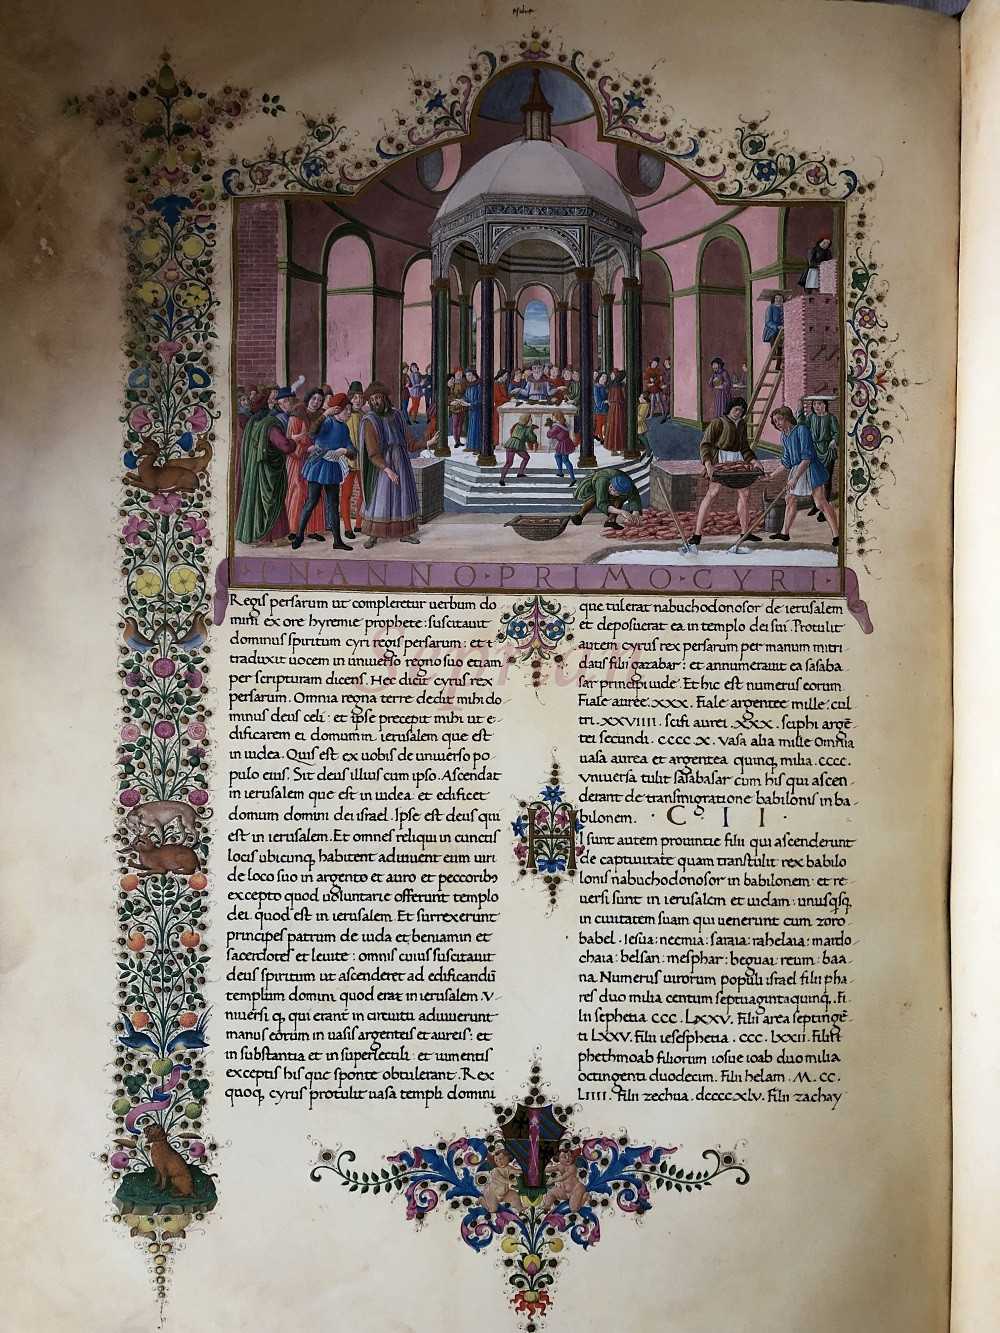 EN·ANNO·PRIMO·CYRI·
Regis persarum ut compleretur uerbum do
mini ex ore hyremie prophete: suscitauit
dominus spiritum cyri regis persarum: et
traduxit uocem in uniuerso regno suo etiam
per scripturam dicens. Hec dicit cyrus rex
persarum. Omnia regna terre dedit mihi do
minus deus celi: et ipse precepit mihi ut e-
dificarem ei domum in ierusalem que est
in iudea. Quis est ex uobis de uniuerso po-
pulo eius. Sit deus illius cum ipso. Ascendat
in ierusalem que est in iudea et edificet
domum domini dei israel. Ipse est deus qui
est in ierusalem. Et omnes reliqui in cunctis
locis ubicunq habitent adiuuent eum uiri
de loco suo in argento et auro et peccoribs
excepto quod uoluntarie offerunt templo
dei quod est in ierusalem. Et surrexerunt
principes patrum de iuda et beniamin et
sacerdotes et leuite: omnis cuius suscitauit
deus spiritum ut ascenderet ad edificandū
templum domini quod erat in ierusalem. V-
niuersi q, qui erant in circuitu adiuuerunt
manus eorum in uasis argenteis et aureis: et
in substantia et in supellectili et iumentis
exceptis his que sponte obtulerant. Rex
quoq, cyrus protulit uasa templi domini
que tulerat nabuchodonosor de ierusalem
et deposuerat ea in templo dei sui. Protulit
autem cyrus rex persarum per manum mitri
datis filii gazabar: et annumerauit ea sasaba-
sar principi iude. Et hic est numerus eorum.
Fiale auree .xxx. Fiale argentee mille: cul
tri .xxviiii. scifi aurei .xxx. sciphi argē-
tei secundi. cccc.x. uasa alia mille Omnia
uasa aurea et argentea quinq, milia. cccc.
Vniuersa tulit sasabasar cum his qui ascen-
derant de transmigratione babilonis in ba-
bilonem. · C · I I ·
HI sunt autem prouintie filii qui ascenderunt
de captiuitate quam transtulit rex babilo
lonis nabuchodonosor in babilonem et re-
uersi sunt in ierusalem et iudam: unusqsq,
in ciuitatem suam qui uenerunt cum zoro-
babel. Iesua: neemia: saraia: rahelaia: mardo-
chaia: belsan: mesphar: beguai: reum: baa-
na. Numerus uirorum populi israel filii pha-
res duo milia centum septuagintaquinq,. Fi-
lii sephetia ccc. Lxxv. Filii area septingē-
ti Lxxv. Filii iesesphetia .ccc. lxxii. Filii
phethmoab filiorum iosue ioab duo milia
octingenti duodecim. Filii helam .M. cc.
Liiii. Filii zechua. dccccxlv. Filii zachay